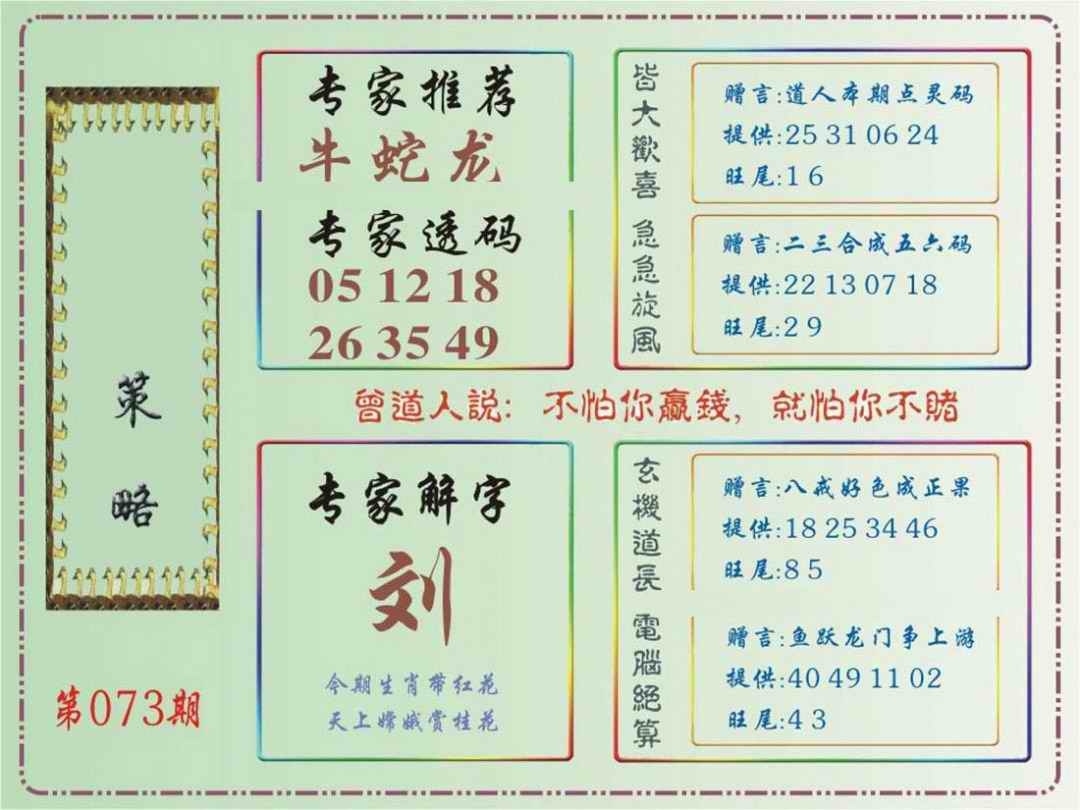 策
略
第073期
专家推荐
牛蛇龙
专家透码
05 12 18
26 35 49
皆大歡喜
赠言:道人本期点灵码
提供:25 31 06 24
旺尾:1 6
急急旋風
赠言:二三合成五六码
提供:22 13 07 18
旺尾:2 9
曾道人説：不怕你贏錢，就怕你不賭
专家解字
刘
今期生肖带红花
天上嫦娥赏桂花
玄機道長
赠言:八戒好色成正果
提供:18 25 34 46
旺尾:8 5
電腦絕算
赠言:鱼跃龙门争上游
提供:40 49 11 02
旺尾:4 3